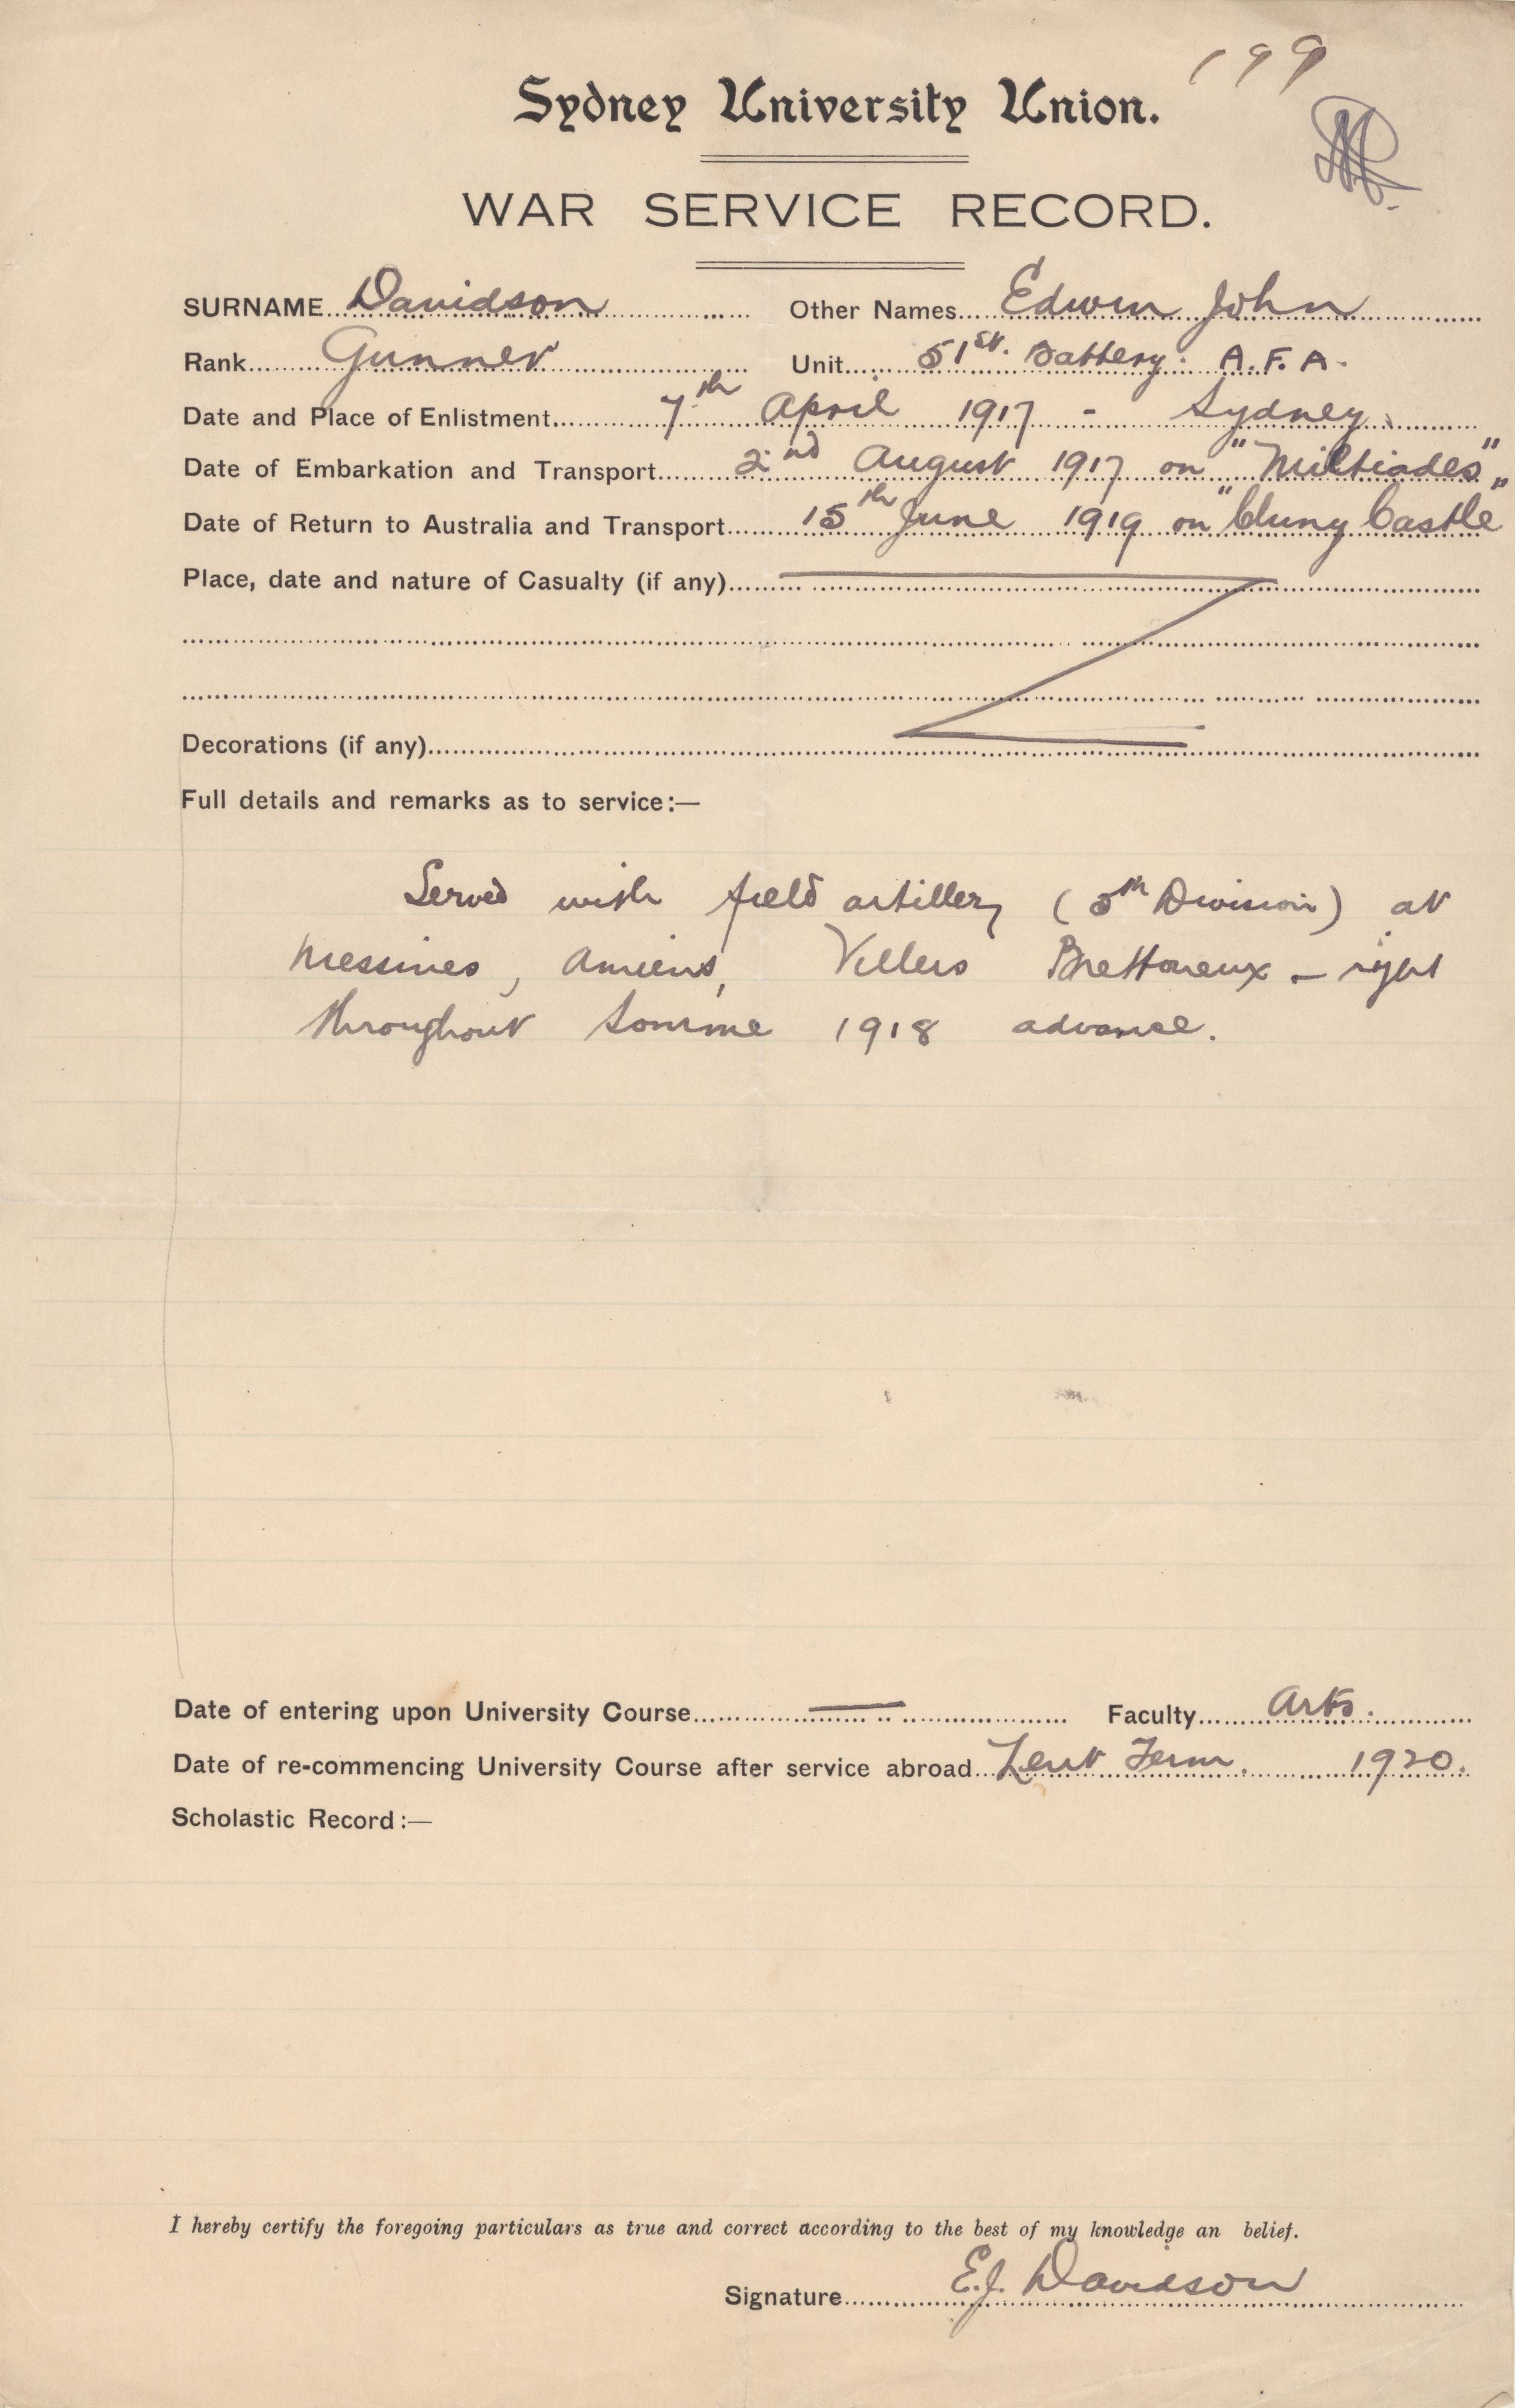 199
Sydney University Union.
WAR SERVICE RECORD.
SURNAME Davidson Other Names Edwin John
Rank Gunner Unit 51st. Battery. A.F.A.
Date and Place of Enlistment 7th April 1917 - Sydney
Date of Embarkation and Transport 2nd August 1917 on "Miltiades"
Date of Return to Australia and Transport 15th June 1919 on "Cluny Castle"
Place, date and nature of Casualty (if any)
Decorations (if any)
Full details and remarks as to service:—
Served with field artillery (5th Division) at
Messines, Amiens, Villers Brettoneux - right
throughout Somme 1918 advance.
Date of entering upon University Course — Faculty Arts.
Date of re-commencing University Course after service abroad Lent Term. 1920.
Scholastic Record:—
I hereby certify the foregoing particulars as true and correct according to the best of my knowledge an belief.
Signature E.J. Davidson